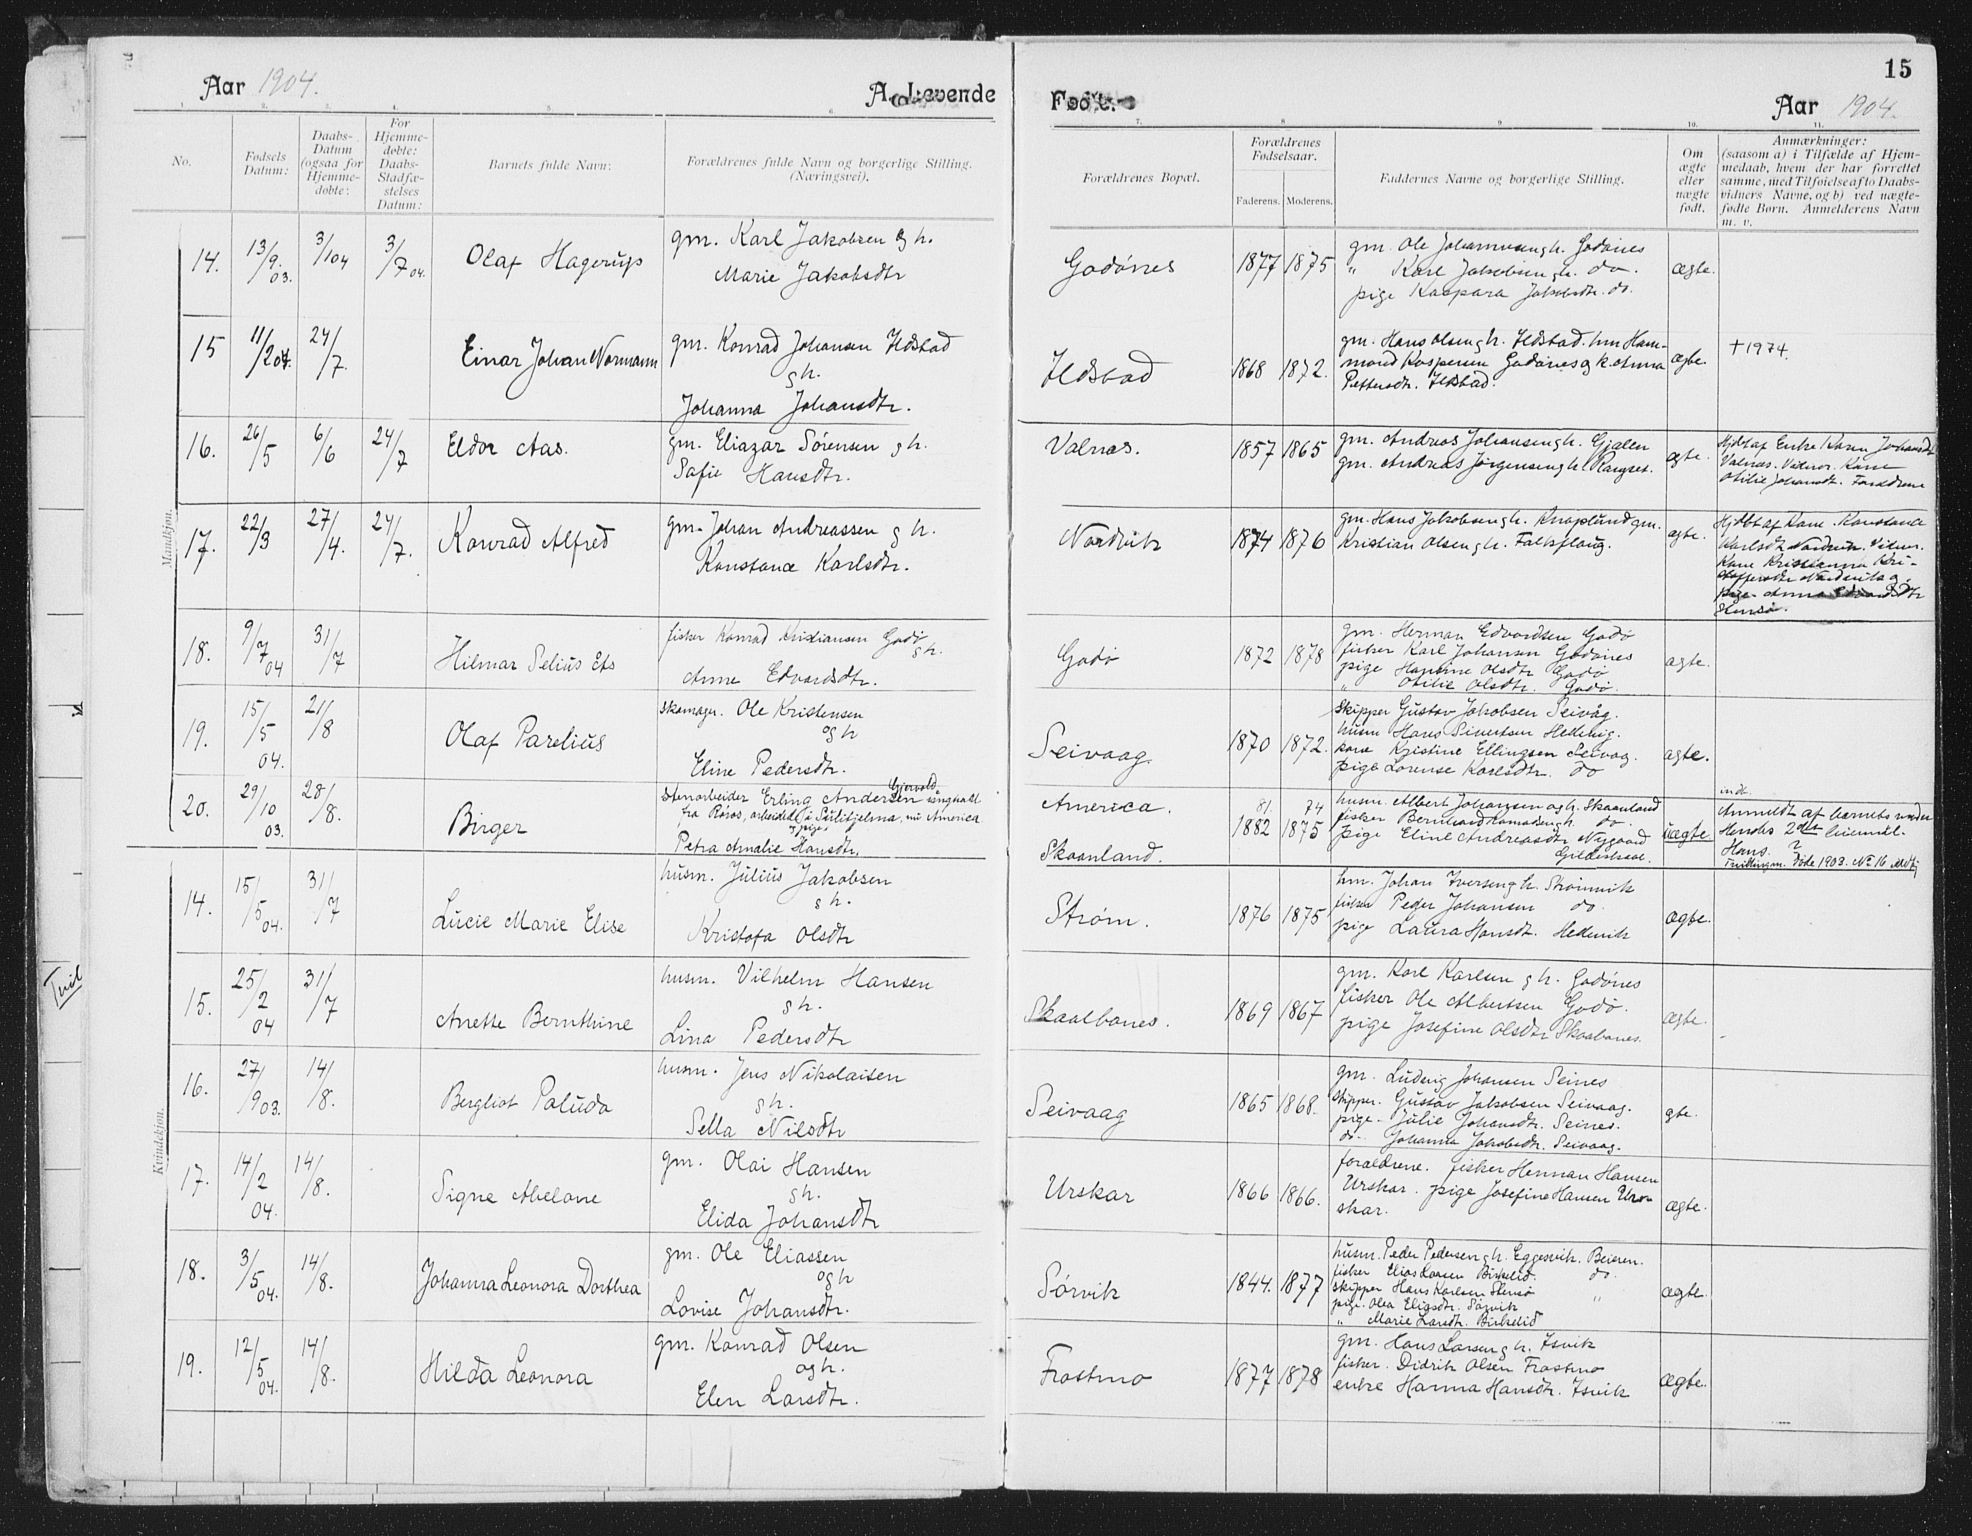 15
Aar 1904.
A. Levende
Født.
Aar 1904.
1. 2. 3. 4. 5. 6. 7. 8. 9. 10. 11.
No.
Fødsels Datum:
Daabs-Datum (ogsaa for Hjemme-døbte:
For Hjemme-døbte: Daabs-Stadfæ-stelses Datum:
Barnets fulde Navn:
Forældrenes fulde Navn og borgerlige Stilling.
(Næringsvei).
Forældrenes Bopæl.
Forældrenes Fødselsaar.
Faderens. Moderens.
Faddernes Navne og borgerlige Stilling.
Om ægte eller uægte født.
Anmærkninger:
(saasom a) i Tilfælde af Hjem-
medaab, hvem der har forrettet
samme, med Tilføielse af to Daabs-
vidners Navne, og b) ved uægte-
fødte Børn. Anmelderens Navn
m. v.
Mandkjøn.
14. 13/9 03. 3/1 04 3/7 04. Olaf Hagerup
gm. Karl Jakobsen og h.
Marie Jakobsdtr
Godønes 1877 1875
gm. Ole Johannesen g h. Godönes
" Karl Jakobsen g h. do.
pige Kaspara Jakobsdtr. do.
ægte.
15 11/2 04. 24/7. Einar Johan Normann
gm. Konrad Johansen Ildstad
g h.
Johanna Johansdtr.
Ildstad 1868 1872.
gm. Hans Olsen g h. Ildstad. hm Ham-
mond Kaspersen Godønes og k. Anna
Pettersdtr. Ildstad.
ægte.
† 1974.
16. 26/5 6/6 24/7 Eldor Aas.
gm. Eliazar Sörensen g h.
Sofie Hansdtr.
Valnæs. 1857 1865
gm. Andreas Johansen g h. Gjællen
gm. Andreas Jørgensen g h. Rangset.
ægte.
Hjdbt af Enke Karen Johansdtr
Valnæs. Vidner. Kone
Otilie Johansdtr. Forældrene
17. 22/3 27/4. 24/7. Konrad Alfred
gm. Johan Andreassen g h.
Konstance Karlsdtr.
Nordvik 1874 1876
gm. Hans Jakobsen g h. Knaplund gm.
Kristian Olsen g h. Falkflaug.
ægte.
Hjdbt af Kone. Konstance
Karlsdtr Nordvik. Vidner.
Kone Kristianna Kri-
stoffersdtr Nordvik og
pige Anna Edvardsdtr
Hensö.
18. 9/7 04 31/7 Hilmar Selius Ets
fisker Konrad Kristiansen Godø
g h.
Anne Edvardsdtr.
Godø 1872 1878
gm. Herman Edvardsen Godø
fisker Karl Johansen Godønes
pige Hansine Olsdtr Godø
" Otilie Olsdtr. Godø.
ægte.
19. 15/5 04. 21/8 Olaf Parelius
Skomager. Ole Kristensen
og h
Eline Pedersdtr.
Seivaag 1870 1872.
Skipper Gustav Jakobsen Seivåg.
husm Hans Sivertsen Hellevig.
kone Kristine Ellingsen Seivag.
pige Lorense Karlsdtr. do
ægte.
20. 29/10 03. 28/8. Birger
Gjervold
Stenarbeider Erling Andersen ungkall
fra Röros, arbeidede i Sulitjelma, nu America
g pige
Petra Amalie Hansdtr.
America.
Skaanland.
81. 74
1882 1875
husm. Albert Johansen og h. Skaanland
fisker Bernhard Konradsen g h. do.
pige Eline Andreasdtr Nygaard
Gildeskaal.
uægte
indt.
Anmeldt af barnets moder
Hendes 2det leiermål.
Hans. ?
Tvillingsm. Døde 1903. No 16
Kvindekjøn.
14. 15/5 04. 31/7 Lucie Marie Elise
husm. Julius Jakobsen
g h.
Kristofa Olsdtr
Strøm. 1876 1875
hm. Johan Iversen g h. Strömvik
fisker Peder Johansen do.
pige Laura Hansdtr. Hedevik
ægte.
15. 25/2 04 31/7 Anette Bernthine
husm. Vilhelm Hansen
g h.
Lina Pedersdtr
Skaalbones. 1869 1867
gm. Karl Karlsen g h. Godønes
fisker Ole Albertsen Godø.
pige Josefine Olsdtr Skaalbones.
ægte.
16. 27/9 03. 14/8. Bergliot Paluda
husm. Jens Nikolaisen
g h.
Sella Nilsdtr
Seivaag 1865 1868.
gm. Ludvig Johansen Seines
Skipper. Gustav Jakobsen Seivaag.
pige. Julie Johansdtr. Seines.
do. Johanna Jakobsdtr. Seivaag.
gte.
17. 14/2 04. 14/8. Signe Abelone
gm. Olai Hansen
g h.
Elida Johansdtr
Urskar 1866 1866.
forældrene. fisker Herman Hansen
Urskar. pige Josefine Hansen Urs-
skar.
ægte.
18. 3/5 04. 14/8. Johanna Leonora Dorthea
gm. Ole Eliassen
og h
Lovise Johansdtr.
Sörvik 1844. 1877
husm. Peder Pedersen g h. Eggesvik. Beieren.
fisker Elias Larsen Birkelid. do.
Skipper Hans Karlsen Hensø "
pige. Olea Eliasdtr. Sørvik
" Marie Larsdtr. Birkelid
ægte.
19. 12/5 04. 14/8. Hilda Leonora
gm. Konrad Olsen
og h.
Elen Larsdtr.
Frostmo 1877 1878
gm. Hans Larsen g h. Isvik
fisker. Didrik Olsen Frostmo
enke Hanna Hansdtr. Isvik
ægte.
Tvil